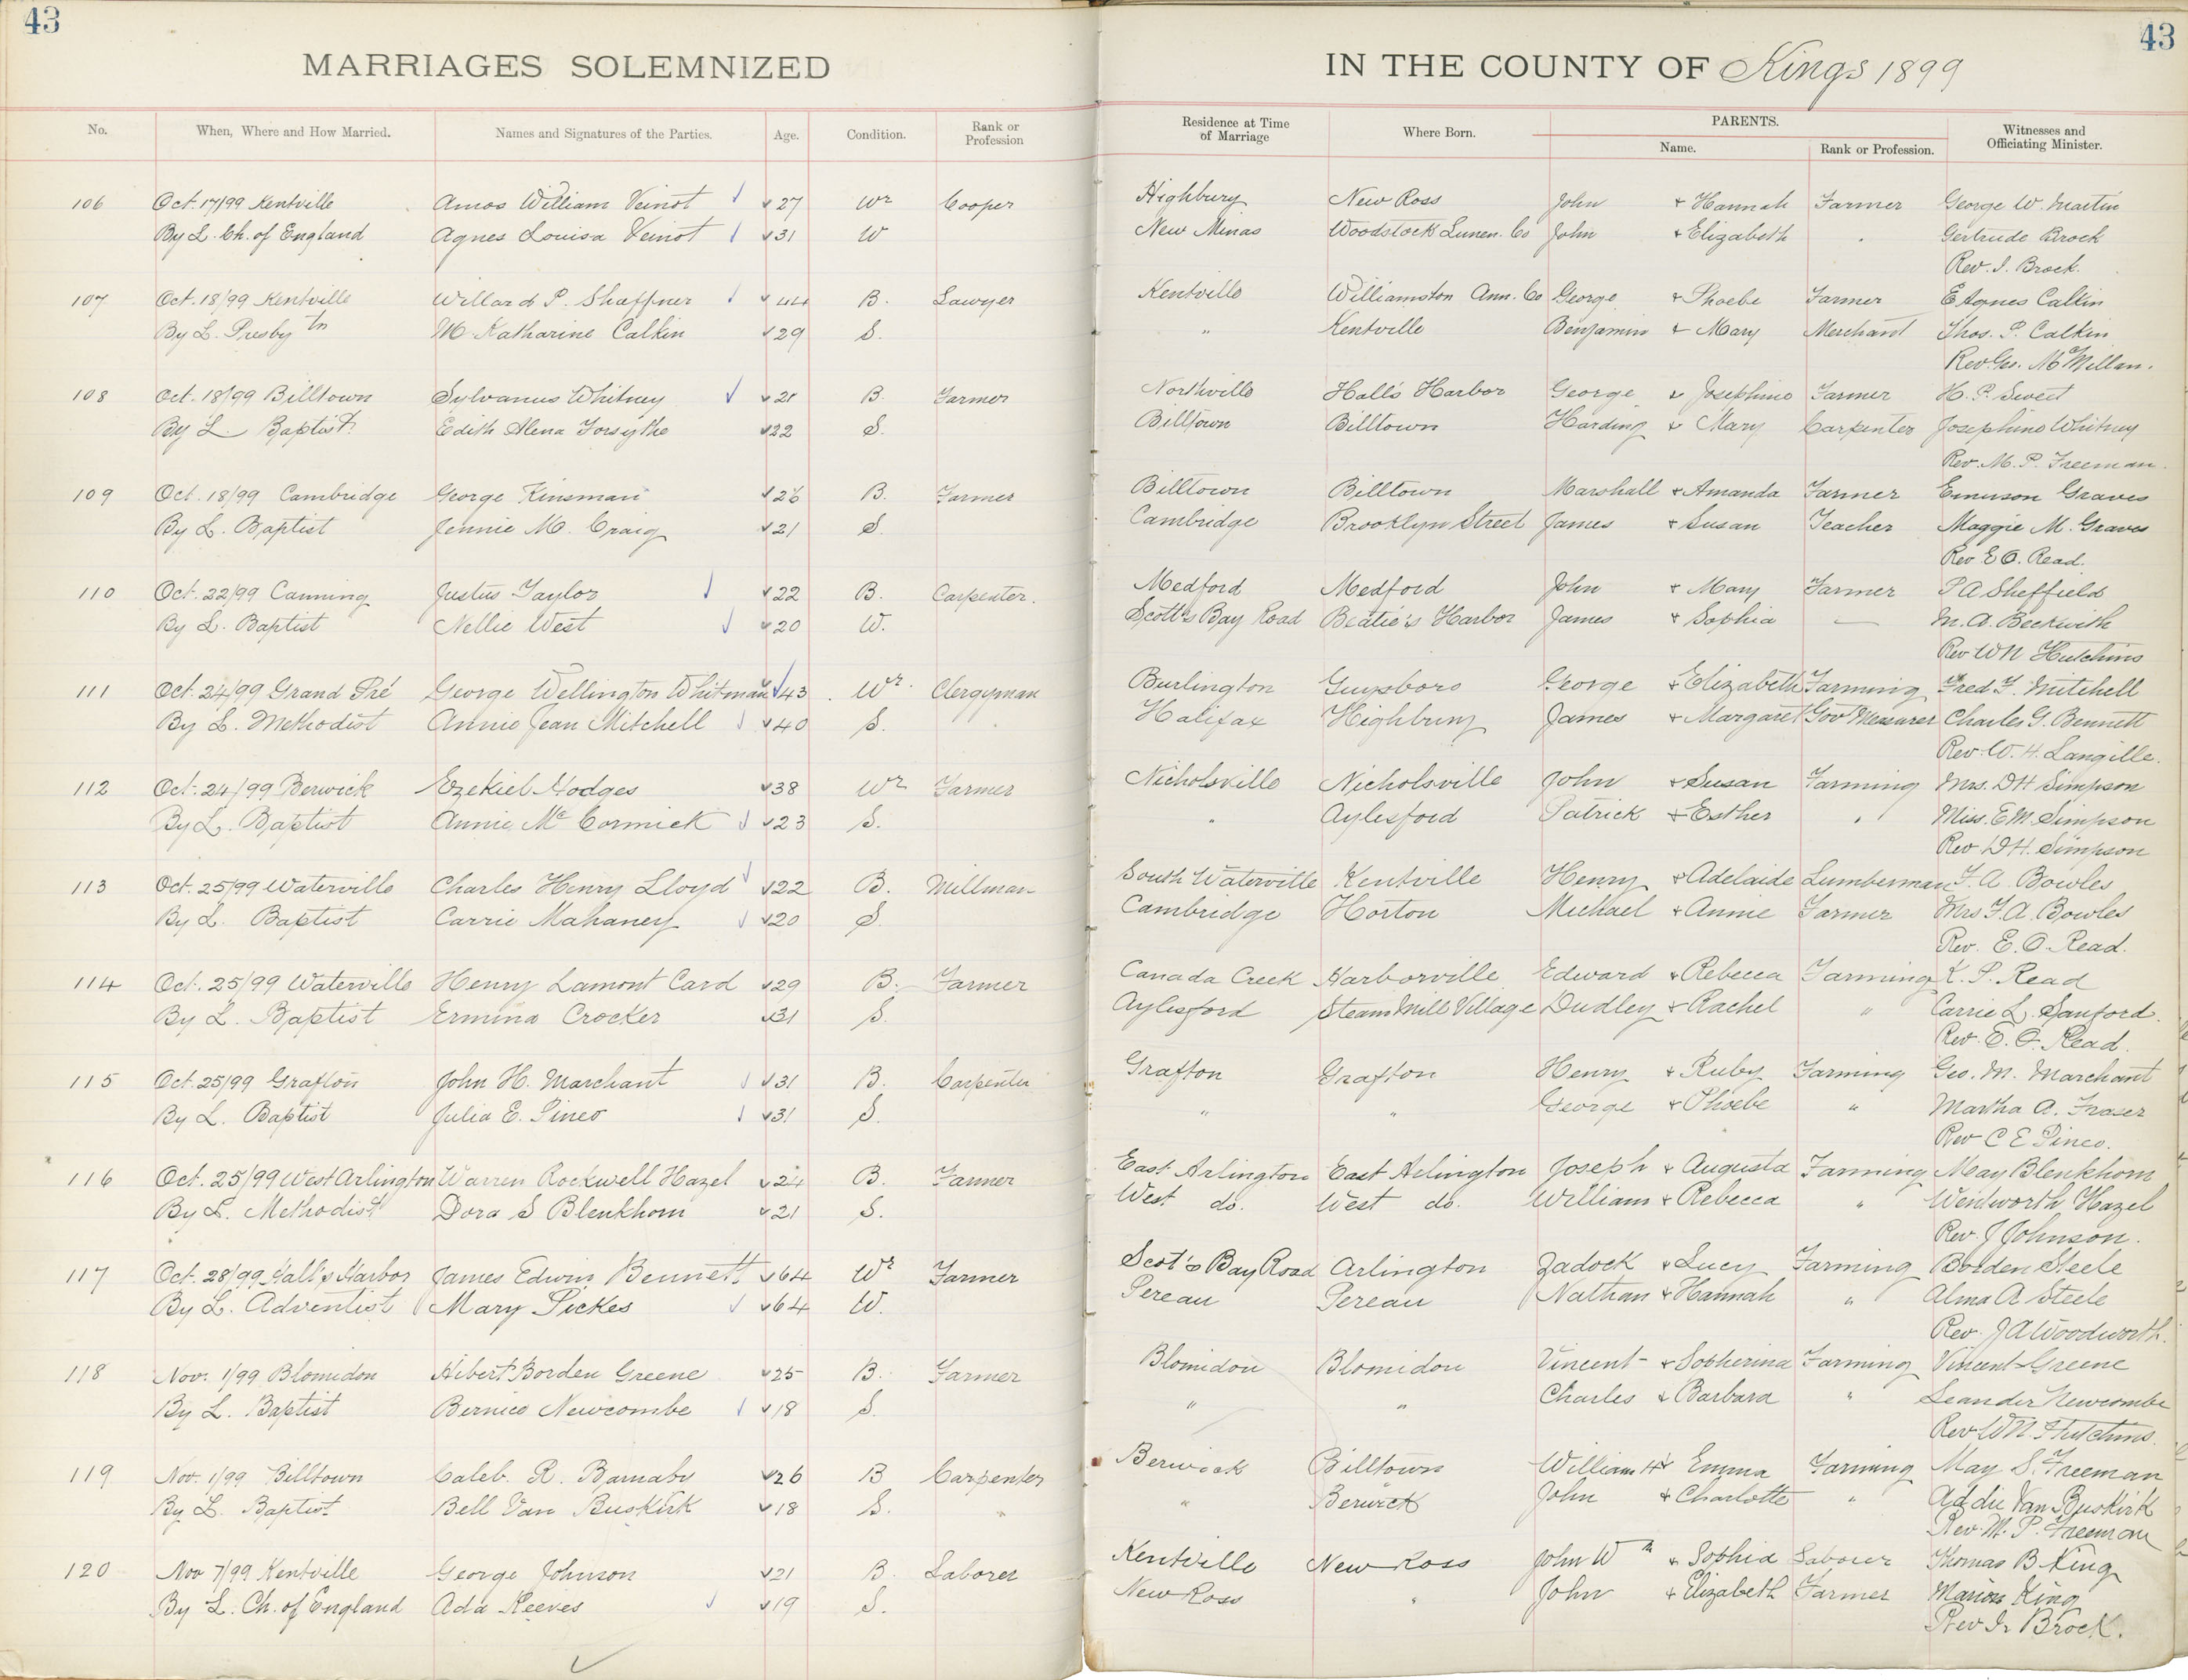 43 43
MARRIAGES SOLEMNIZED IN THE COUNTY OF Kings 1899
No. When, Where and How Married. Names and Signatures of the Parties. Age. Condition. Rank or Profession Residence at Time of Marriage Where Born. PARENTS. Name. Rank or Profession. Witnesses and Officiating Minister.
106 Oct. 17/99 Kentville Amos William Veinot 27 Wr Cooper Highbury New Ross John & Hannah Farmer George W. Martin
By L. Ch. of England Agnes Louisa Veinot 31 W New Minas Woodstock Lunen. Co John & Elizabeth " Gertrude Brock
Rev. I. Brock.
107 Oct. 18/99 Kentville Willard P. Shaffner 44 B. Lawyer Kentville Williamston Ann. Co George & Phoebe Farmer E Agnes Calkin
By L. Presbytn M. Katharine Calkin 29 S. " Kentville Benjamin & Mary Merchant Thos. P. Calkin
Rev. Geo. McMillan.
108 Oct. 18/99 Billtown Sylvanus Whitney 21 B. Farmer Northville Hall's Harbor George & Josephine Farmer H. P. Sweet
By L. Baptist Edith Alena Forsythe 22 S. Billtown Billtown Harding & Mary Carpenter Josephine Whitney
Rev. M. P. Freeman.
109 Oct. 18/99 Cambridge George Kinsman 26 B. Farmer Billtown Billtown Marshall & Amanda Farmer Emerson Graves
By L. Baptist Jennie M. Craig 21 S. Cambridge Brooklyn Street James & Susan Teacher Maggie M. Graves
Rev E O. Read.
110 Oct. 22/99 Canning Justus Taylor 22 B. Carpenter. Medford Medford John & Mary Farmer P A Sheffield
By L. Baptist Nellie West 20 W. Scott's Bay Road Beatie's Harbor James & Sophia — M. A. Beckwith
Rev W N Hutchins
111 Oct. 24/99 Grand Pré George Wellington Whitman 43 Wr. Clergyman Burlington Guysboro George & Elizabeth Farming Fred F. Mitchell
By L. Methodist Annie Jean Mitchell 40 S. Halifax Highbury James & Margaret Govt Measurer Charles G. Bennett
Rev. W. H. Langille.
112 Oct. 24/99 Berwick Ezekiel Hodges 38 Wr Farmer Nicholsville Nicholsville John & Susan Farming Mrs. D H Simpson
By L. Baptist Annie McCormick 23 S. " Aylesford Patrick & Esther " Miss. E M. Simpson
Rev D H. Simpson
113 Oct. 25/99 Waterville Charles Henry Lloyd 22 B. Millman South Waterville Kentville Henry & Adelaide Lumberman F. A. Bowles
By L. Baptist Carrie Mahaney 20 S. Cambridge Horton Michael & Annie Farmer Mrs F. A. Bowles
Rev. E. O. Read.
114 Oct. 25/99 Waterville Henry Lamont Card 29 B. Farmer Canada Creek Harborville Edward & Rebecca Farming K. P. Read
By L. Baptist Ermina Crocker 31 S. Aylesford Steam Mill Village Dudley & Rachel " Carrie L. Sanford.
Rev. E. O. Read.
115 Oct. 25/99 Grafton John H. Marchant 31 B. Carpenter Grafton Grafton Henry & Ruby Farming Geo. M. Marchant
By L. Baptist Julia E. Pineo 31 S. " " George & Phoebe " Martha A. Fraser
Rev C E Pineo.
116 Oct. 25/99 West Arlington Warren Rockwell Hazel 24 B. Farmer East Arlington East Arlington Joseph & Augusta Farming May Blenkhorn
By L. Methodist Dora S Blenkhorn 21 S. West do. West do. William & Rebecca " Wentworth Hazel
Rev. J Johnson.
117 Oct. 28/99 Hall's Harbor James Edwin Bennett 64 Wr Farmer Scot's Bay Road Arlington Zadock & Lucy Farming Borden Steele
By L. Adventist Mary Pickes 64 W. Pereau Pereau Nathan & Hannah " Alma A Steele
Rev. J A Woodworth.
118 Nov. 1/99 Blomidon Hibert Borden Greene 25 B. Farmer Blomidon Blomidon Vincent & Sopherina Farming Vincent Greene
By L. Baptist Bernice Newcombe 18 S. " " Charles & Barbara " Leander Newcombe
Rev W N. Hutchins.
119 Nov. 1/99 Billtown Caleb. R. Barnaby 26 B Carpenter Berwick Billtown William H & Emma Farming May S. Freeman
By L. Baptist Bell Van Buskirk 18 S. " " Berwick John & Charlotte " Addie Van Buskirk
Rev. M. P. Freeman
120 Nov 7/99 Kentville George Johnson 21 B. Laborer Kentville New Ross John Wm & Sophia Laborer Thomas B King
By L. Ch. of England Ada Reeves 19 S. New Ross " John & Elizabeth Farmer Marion King
Rev I. Brock.